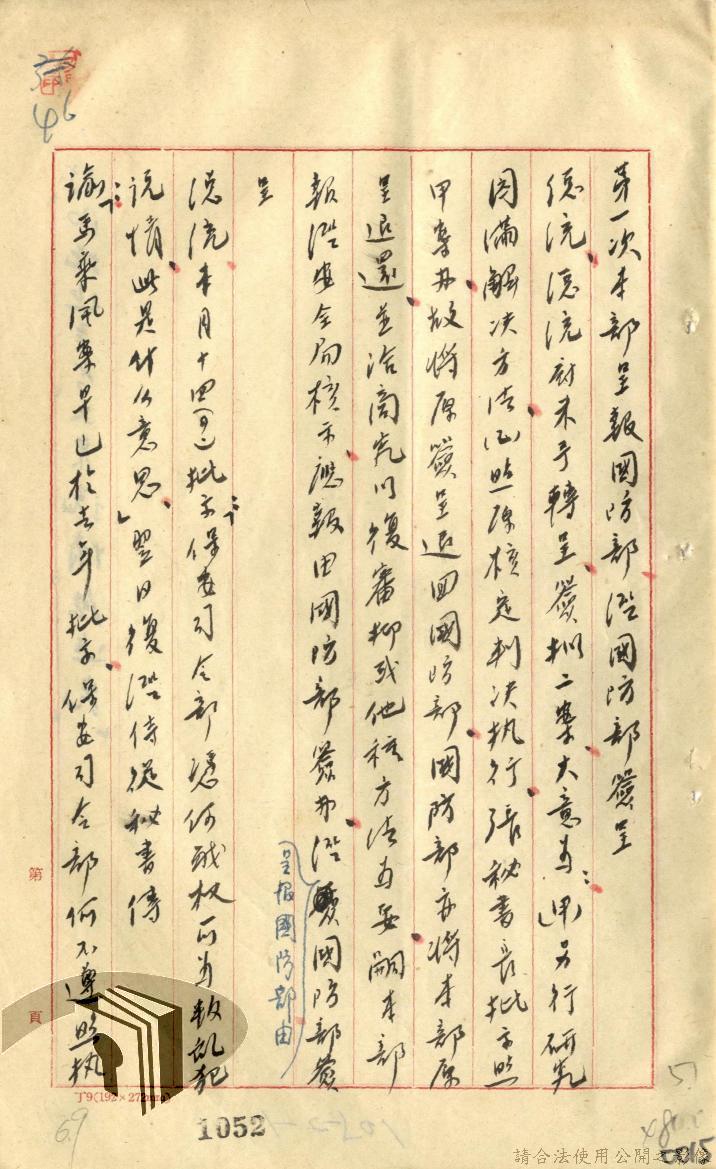 第一次本部呈報國防部經國防部簽呈
總統總統府未予轉呈簽擬二案大意為:(甲)另行研究
圓滿解決方法(乙)照原核定判決執行張秘書長批示照
甲案辦故將原簽呈退回國防部國防部亦將本部原
呈退還並洽商究以復審抑或他種方法為妥嗣本部
報經安全局核示應報由國防部簽辦經國防部簽
呈報國防部由
呈
總統本月十四(日)批示:「保安司令部憑何職權可為叛亂犯
說情此是什么意思」翌日復經侍從秘書傳
諭:「馬乘風案早已於去年批示保安司令部何不遵照執
46
第
頁
丁9(192×272mm)
69
1052
請合法使用公開之影像